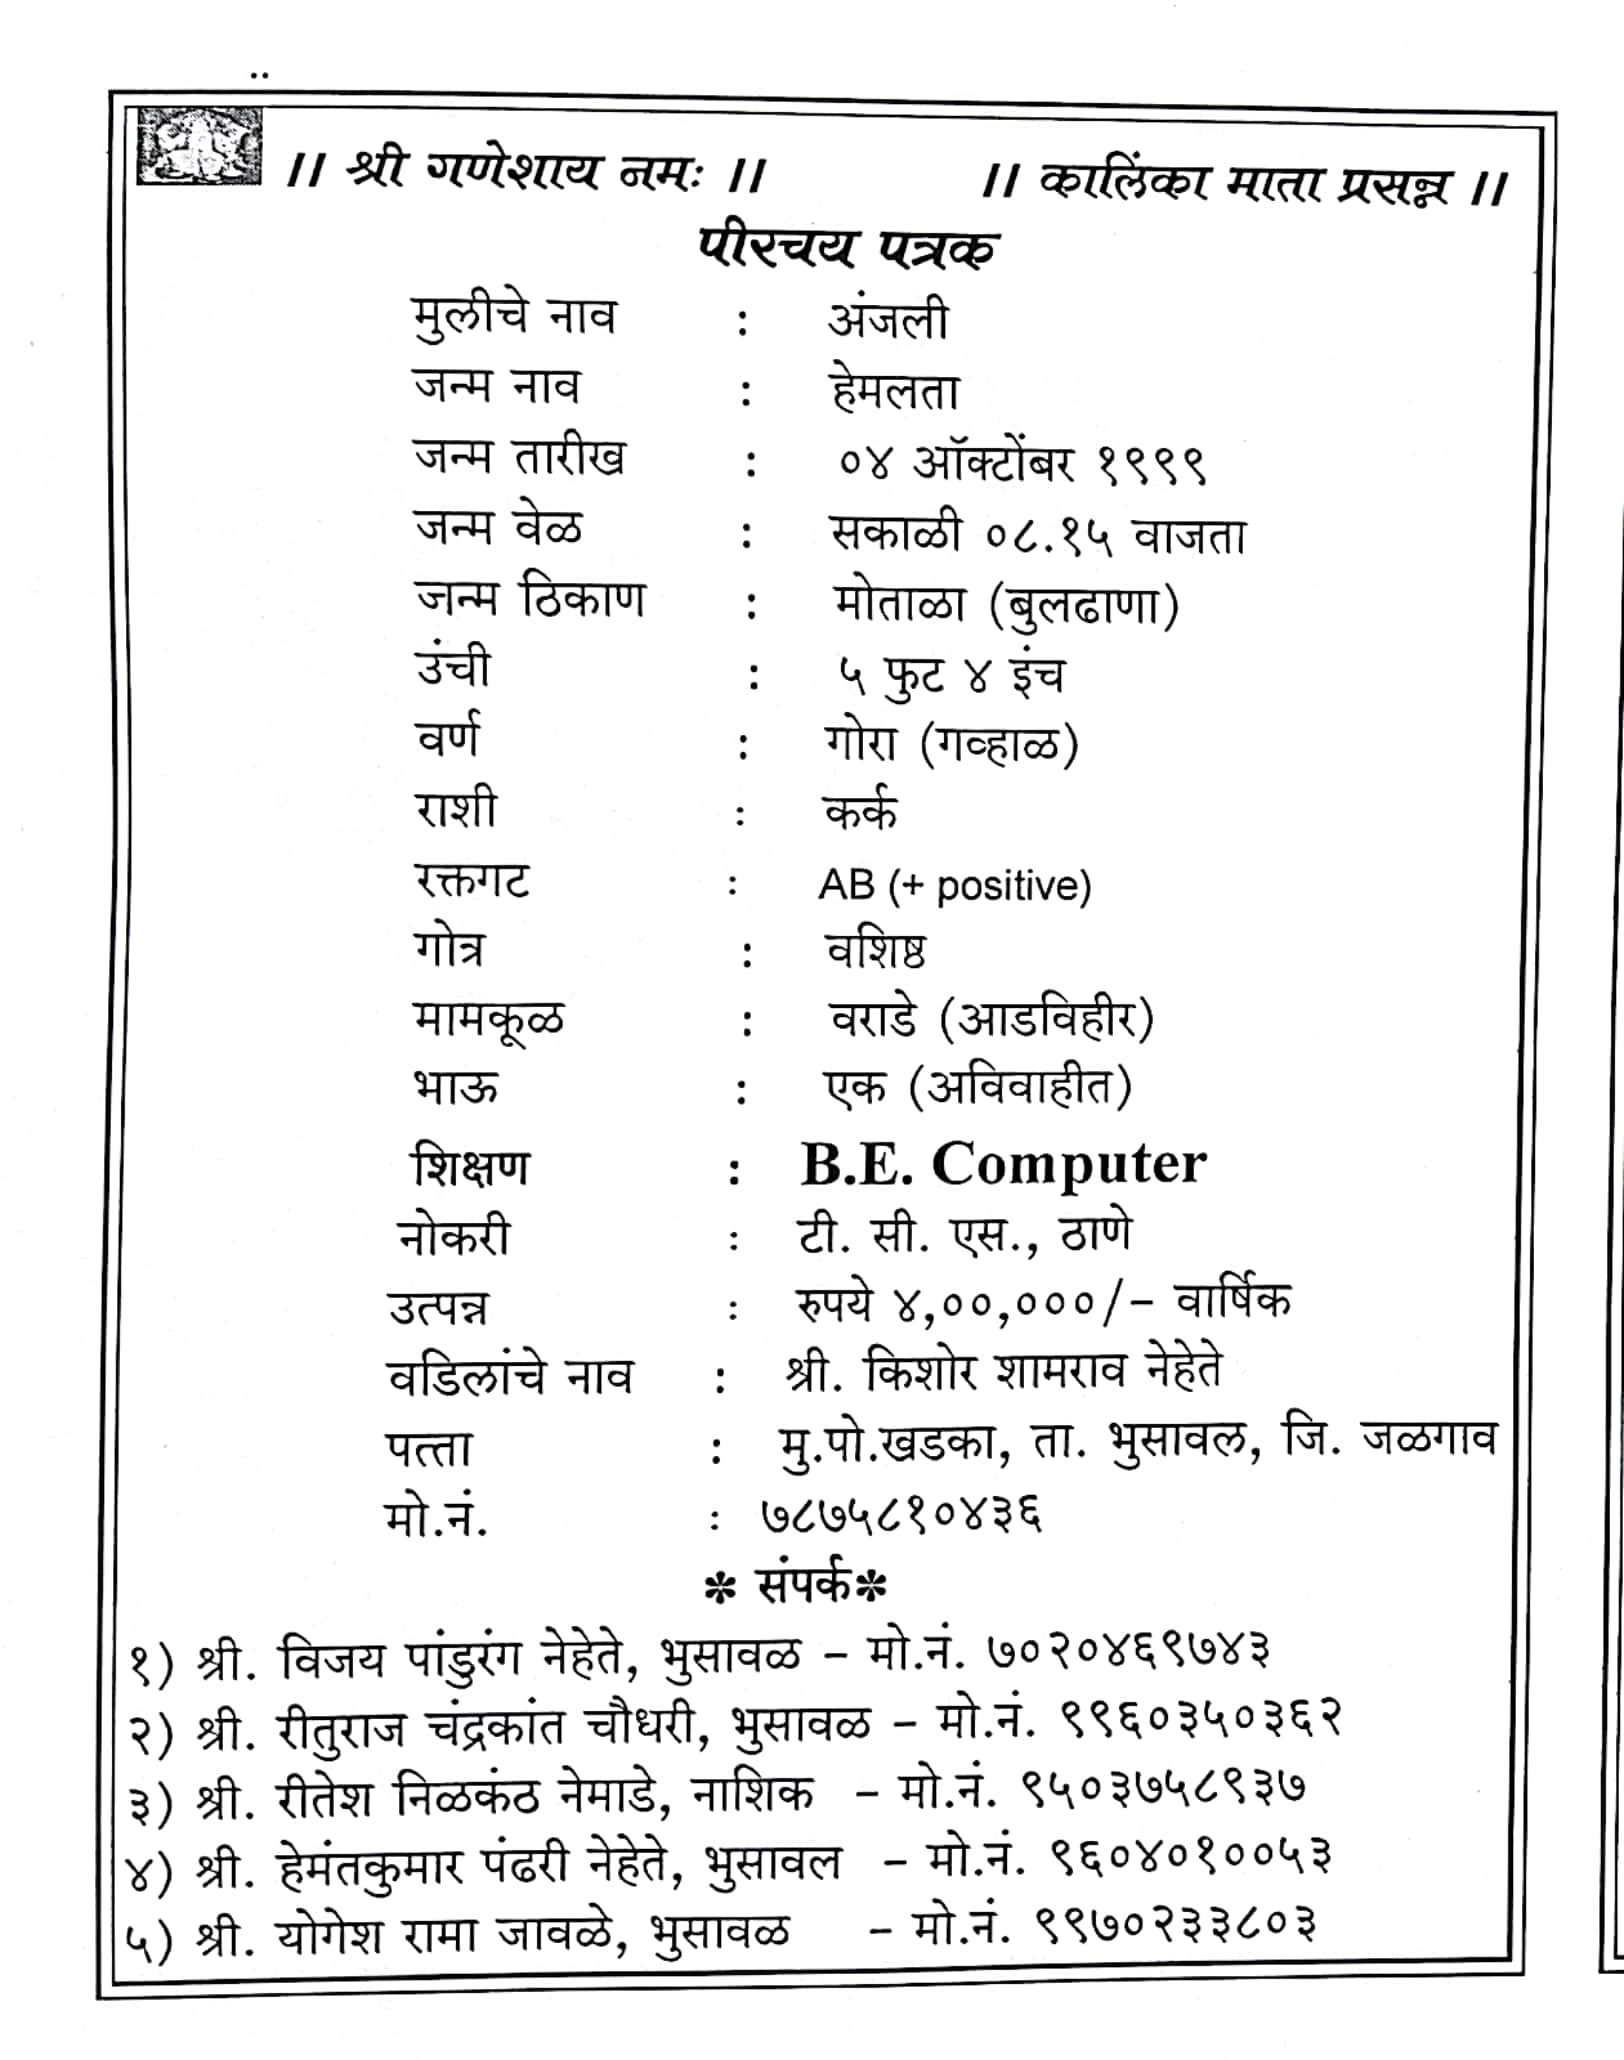 ॥ श्री गणेशाय नमः ॥ ॥ कालिंका माता प्रसन्न ॥
पीरचय पत्रक
मुलीचे नाव : अंजली
जन्म नाव : हेमलता
जन्म तारीख : ०४ ऑक्टोंबर १९९९
जन्म वेळ : सकाळी ०८.१५ वाजता
जन्म ठिकाण : मोताळा (बुलढाणा)
उंची : ५ फुट ४ इंच
वर्ण : गोरा (गव्हाळ)
राशी : कर्क
रक्तगट : AB (+ positive)
गोत्र : वशिष्ठ
मामकूळ : वराडे (आडविहीर)
भाऊ : एक (अविवाहीत)
शिक्षण : B.E. Computer
नोकरी : टी. सी. एस., ठाणे
उत्पन्न : रुपये ४,००,०००/- वार्षिक
वडिलांचे नाव : श्री. किशोर शामराव नेहेते
पत्ता : मु.पो.खडका, ता. भुसावल, जि. जळगाव
मो.नं. : ७८७५८१०४३६
* संपर्क*
१) श्री. विजय पांडुरंग नेहेते, भुसावळ - मो.नं. ७०२०४६९७४३
२) श्री. रीतुराज चंद्रकांत चौधरी, भुसावळ - मो.नं. ९९६०३५०३६२
३) श्री. रीतेश निळकंठ नेमाडे, नाशिक - मो.नं. ९५०३७५८९३७
४) श्री. हेमंतकुमार पंढरी नेहेते, भुसावल - मो.नं. ९६०४०१००५३
५) श्री. योगेश रामा जावळे, भुसावळ - मो.नं. ९९७०२३३८०३